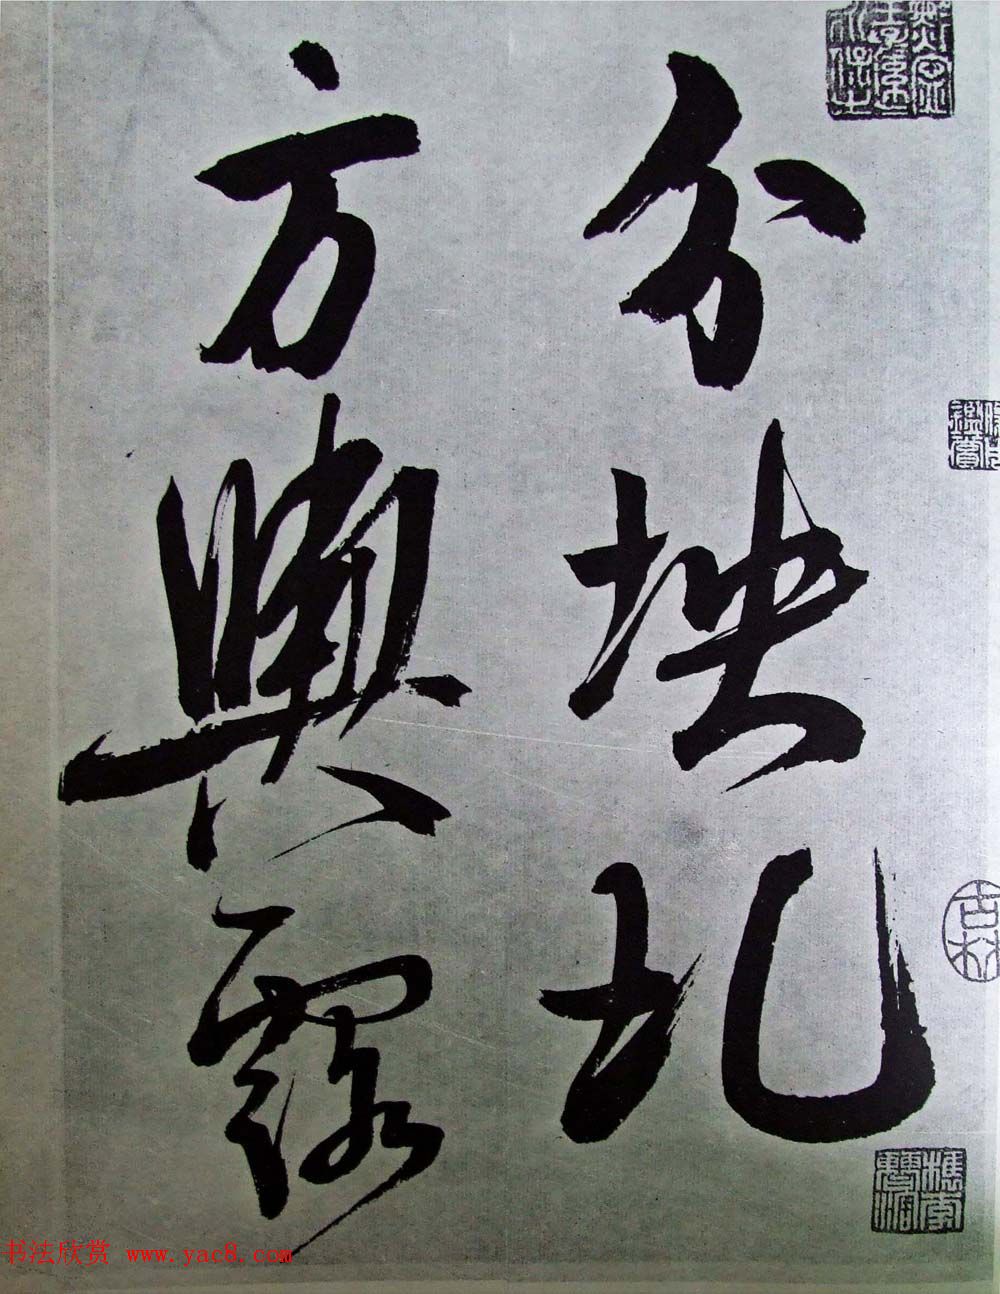 分坱圠
方輿露
书法欣赏 www.yac8.com